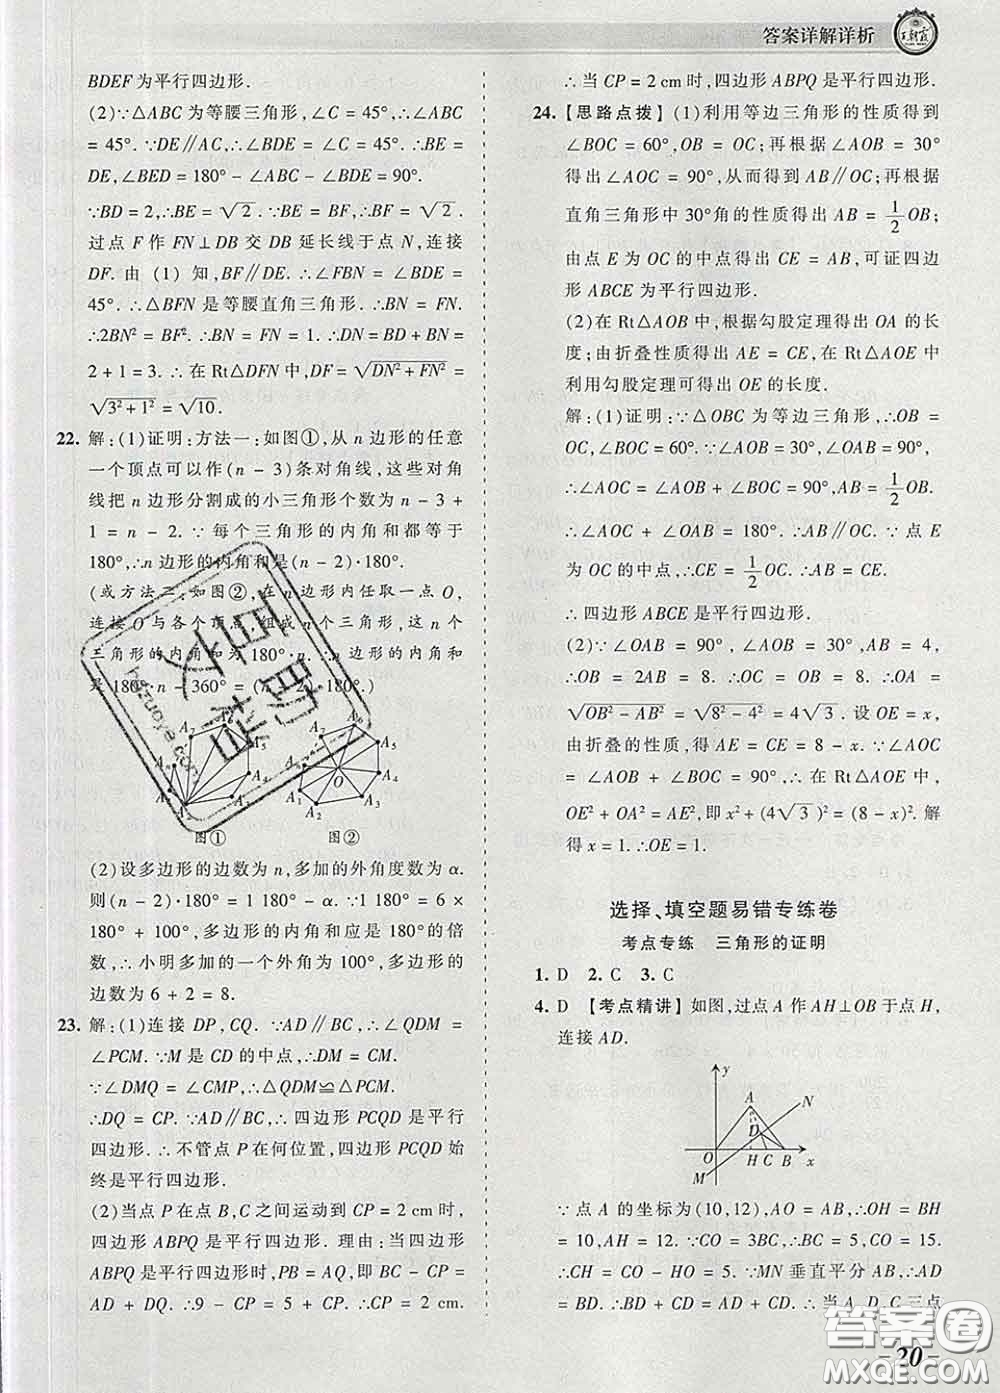 答案详解详析
王朝霞
BDEF 为平行四边形.
(2)∵△ABC 为等腰三角形,∠C = 45°,∴∠ABC
= 45°. ∵DE∥AC,∴∠BDE = ∠C = 45°. ∴BE =
DE,∠BED = 180° - ∠ABC - ∠BDE = 90°.
∵BD = 2,∴BE = √2. ∵BE = BF,∴BF = √2.
过点 F 作 FN⊥DB 交 DB 延长线于点 N,连接
DF. 由 (1) 知,BF∥DE. ∴∠FBN = ∠BDE =
45°. ∴△BFN 是等腰直角三角形. ∴BN = FN.
∴2BN² = BF². ∴BN = FN = 1. ∴DN = BD + BN =
2 + 1 = 3. ∴ 在 Rt△DFN 中,DF = √(DN² + FN²) =
√(3² + 1²) = √10.
22. 解:(1)证明:方法一:如图①,从 n 边形的任意
一个顶点可以作(n - 3)条对角线,这些对角
线把 n 边形分割成的小三角形个数为 n - 3 +
1 = n - 2. ∵ 每个三角形的内角和都等于
180°,∴n 边形的内角和是(n - 2)·180°.
(或方法二:如图②,在 n 边形内任取一点 O,
连接 O 与各个顶点,组成 n 个三角形,这 n 个
三角形的内角和为 180°·n. ∴n 边形的内角和
是 180°·n - 360° = (n - 2)·180°.)
图① 图②
(2)设多边形的边数为 n,多加的外角度数为 α.
则(n - 2)·180° = 1180° - α. ∵1180° = 6 ×
180° + 100°,多边形的内角和应是 180°的倍
数,∴ 小明多加的一个外角为 100°,∴ 多边形
的边数为 6 + 2 = 8.
23. 解:(1)连接 DP,CQ. ∵AD∥BC,∴∠QDM =
∠PCM. ∵M 是 CD 的中点,∴DM = CM.
∵∠DMQ = ∠CMP,∴△QDM≌△PCM.
∴DQ = CP. ∵AD∥BC,∴ 四边形 PCQD 是平行
四边形. ∴ 不管点 P 在何位置,四边形 PCQD 始
终是平行四边形.
(2)当点 P 在点 B,C 之间运动到 CP = 2 cm 时,
四边形 ABPQ 是平行四边形. 理由:当四边形
ABPQ 是平行四边形时,PB = AQ,即 BC - CP =
AD + DQ. ∴9 - CP = 5 + CP. ∴CP = 2 cm.
∴当 CP = 2 cm 时,四边形 ABPQ 是平行四边形.
24. 【思路点拨】(1)利用等边三角形的性质得到
∠BOC = 60°,OB = OC;再根据∠AOB = 30°
得出∠AOC = 90°,从而得到 AB∥OC;再根据
直角三角形中 30°角的性质得出 AB = 1/2 OB;
由点 E 为 OC 的中点得出 CE = AB,可证四边
形 ABCE 为平行四边形.
(2)在 Rt△AOB 中,根据勾股定理得出 OA 的长
度;由折叠性质得出 AE = CE,在 Rt△AOE 中
利用勾股定理可得出 OE 的长度.
解:(1)证明:∵△OBC 为等边三角形,∴OB =
OC,∠BOC = 60°. ∵∠AOB = 30°,∠OAB = 90°,
∴∠AOC = ∠AOB + ∠BOC = 90°,AB = 1/2 OB.
∴∠AOC + ∠OAB = 180°. ∴AB∥OC. ∵ 点 E
为 OC 的中点,∴CE = 1/2 OC. ∴AB = CE.
∴四边形 ABCE 是平行四边形.
(2)∵∠OAB = 90°,∠AOB = 30°,AB = 4,
∴OB = 2AB = 8. ∴OC = OB = 8. ∴OA =
√(OB² - AB²) = √(8² - 4²) = 4√3. 设 OE = x,
由折叠的性质,得 AE = CE = 8 - x. ∵∠AOC
= ∠AOB + ∠BOC = 90°,∴ 在 Rt△AOE 中,
OE² + OA² = AE²,即 x² + (4√3)² = (8 - x)². 解
得 x = 1. ∴OE = 1.
选择、填空题易错专练卷
考点专练 三角形的证明
1. D 2. C 3. C
4. D 【考点精讲】如图,过点 A 作 AH⊥OB 于点 H,
连接 AD.
y
A
N
D
O H C B x
M
∵点 A 的坐标为(10,12),AO = AB,∴OH = BH
= 10,AH = 12. ∵CO = 3BC,∴BC = 5,CO = 15.
∴CH = CO - HO = 5. ∵MN 垂直平分 AB,∴AD
= BD. ∴BD + CD = AD + CD. ∴ 当 A,D,C 三点
- 20 -
答案圈
MXQE.COM